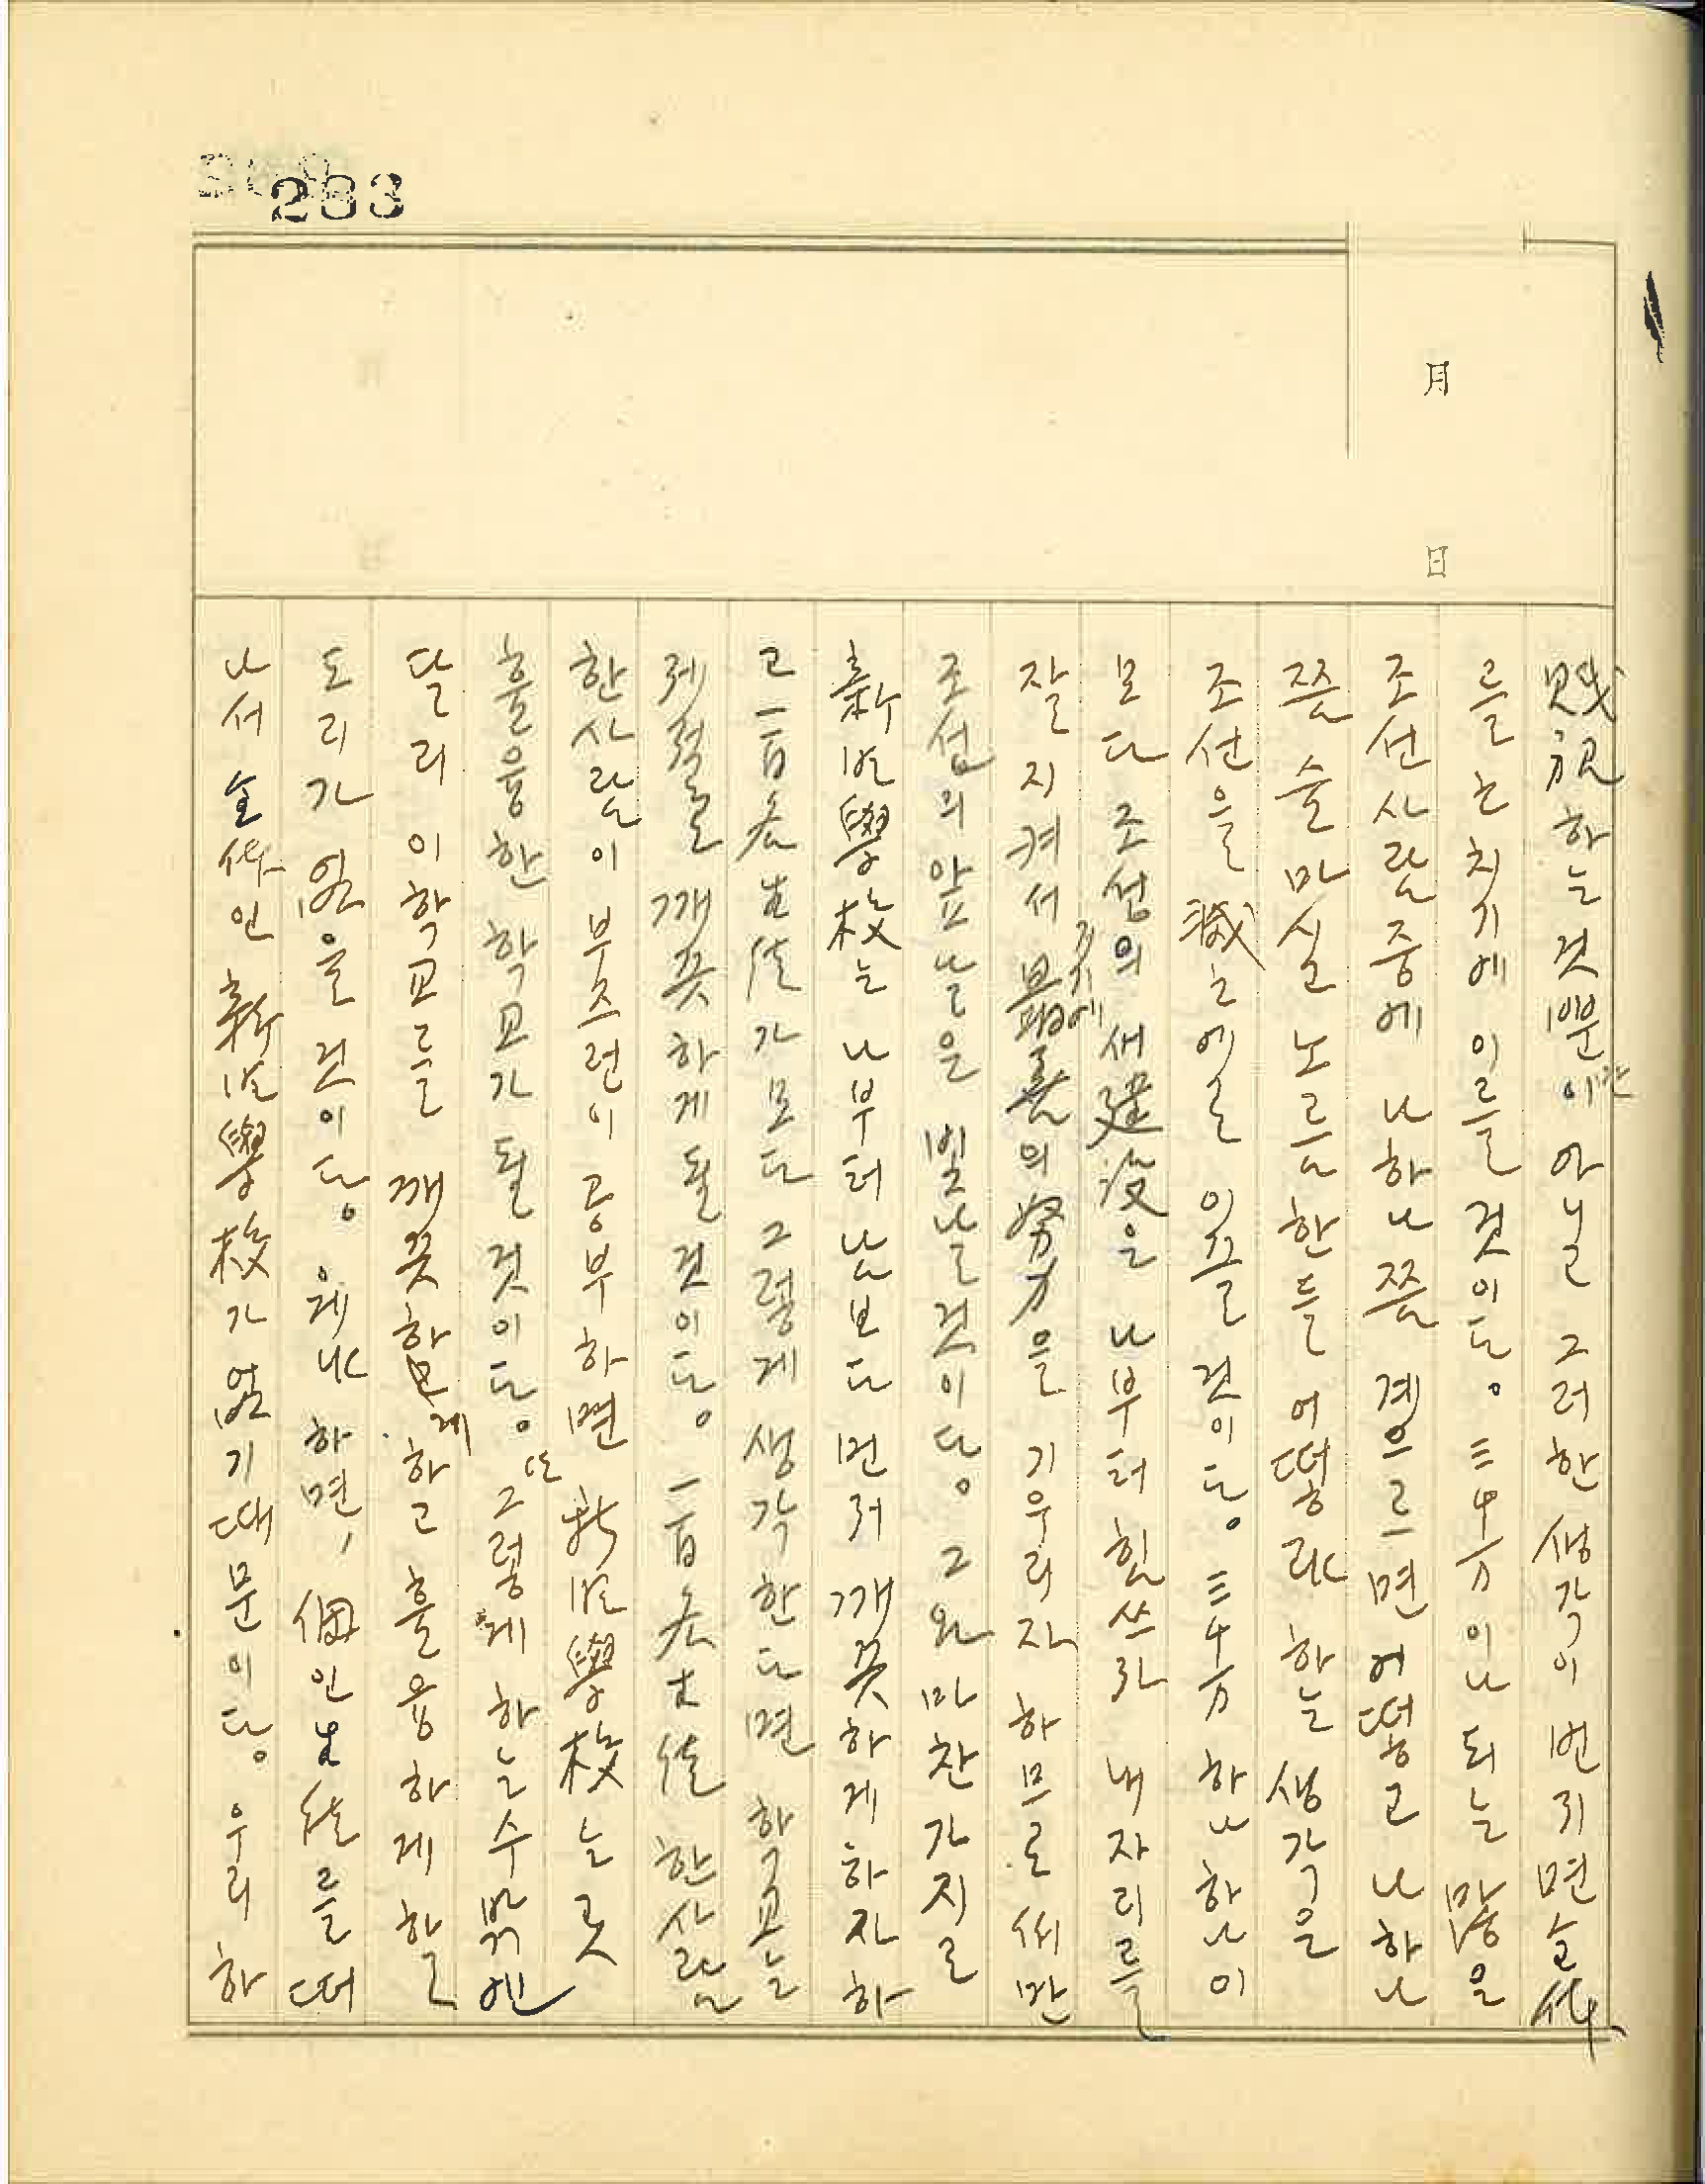 283
月
日
賤視하는것뿐이 아닐 그러한 생각이 번지면 全体
를 는치기에 이를 것이다。三千万이나 되는 많은
조선사람 중에 나하나쯤 곙으르면 어떻고 나하나
쯤 술마실 노름한들 어떻랴 하는 생각은
조선을 滅는에 이끌 것이다。三千万 하나하나이
모다 조선의 새建設은 나부터 힘쓰라 내자리를
잘지켜서 의 努力을 기우리자 하므로써만
조선의 앞날은 빛날 것이다。그와 마찬가지로
新制學校는 나부터 남보다 먼저 깨끗하게하자하
고 一百名生徒가 모다 그렇게 생각한다면 학교는
제절로 깨끗하게 될것이다。一百名生徒 한사람
한사람이 부즈런이 공부하면 新制學校는 곳
훌융한 학교가 될것이다。또 그렇게 하는수밖엔
달리 이학교를 깨끗하게 하고 훌융하게 할
도리가 없을 것이다。웨냐 하면, 個인生徒를 떠
나서 全体인 新制學校가 없기때문이다。우리 하